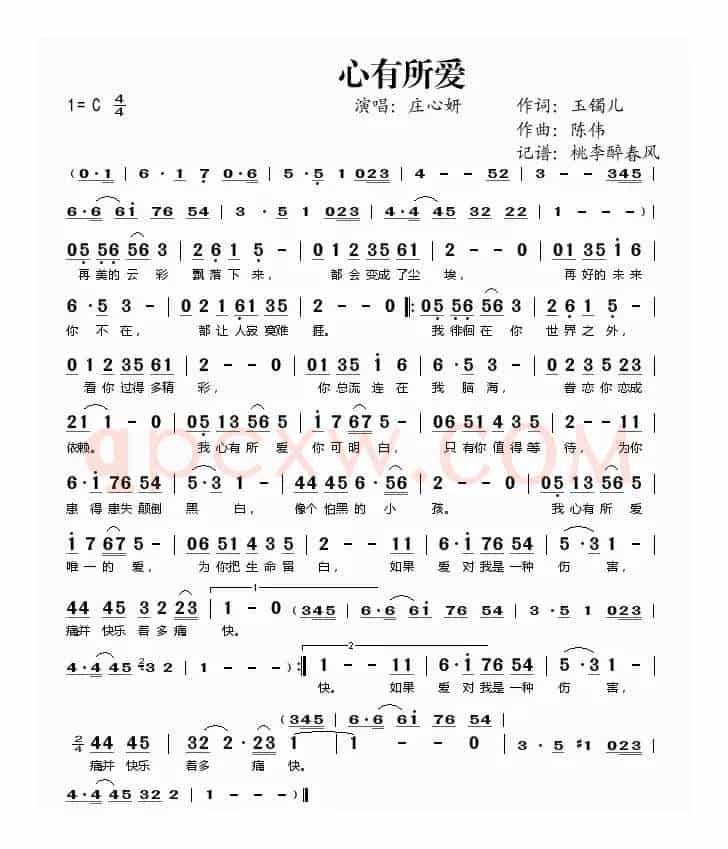 心有所爱
1= C 4/4 演唱: 庄心妍 作词: 玉镯儿
作曲: 陈伟
记谱: 桃李醉春风
( 0·1 | 6 · 1 7 0·6 | 5 · 5 1 023 | 4 - - 52 | 3 - - 345 |
6·6 6i 76 54 | 3 · 5 1 023 | 4·4 45 32 22 | 1 - - - ) |
05 56 56 3 | 2 6 1 5 - | 0 1 2 35 61 | 2 - - 0 | 01 35 i 6 |
再美的云彩 飘落下来, 都会变成了尘 埃, 再好的未来
6 · 5 3 - | 0 2 1 61 35 | 2 - - 0 |: 05 56 56 3 | 2 6 1 5 - |
你 不在, 都让人寂寞难 捱。 我徘徊在你 世界之外,
0 1 2 35 61 | 2 - - 0 | 01 35 i 6 | 6 · 5 3 - | 0 2 3 5 23 |
看你过得多精 彩, 你总流连在 我 脑海, 眷恋你恋成
21 1 - 0 | 05 13 56 5 | i 7 67 5 - | 06 51 4 35 | 2 - - 11 |
依赖。 我心有所爱 你可明白, 只有你值得等 待, 为你
6 · i 76 54 | 5·3 1 - | 44 45 6·56 | 2 - - 0 | 05 13 56 5 |
患得患失颠倒 黑 白, 像个怕黑的小 孩。 我心有所爱
i 7 67 5 - | 06 51 4 35 | 2 - - 11 | 6·i 76 54 | 5·3 1 - |
唯一的爱, 为你把生命留 白, 如果 爱对我是一种 伤 害,
1
44 45 3 2 23 | 1 - 0 (345 | 6·6 6i 76 54 | 3 · 5 1 023 |
痛并快乐着多痛 快。
2
4·4 45 2/4 3·3 2 | 1 - - - ) :| 1 - - 11 | 6·i 76 54 | 5·3 1 - |
快。 如果 爱对我是一种 伤 害,
(345 | 6·6 6i 76 54 |
2/4 44 45 | 32 2·23 1 | 1 - - 0 | 3 · 5 #1 023 |
痛并快乐 着多 痛 快。
4·4 45 32 2 | 1 - - - ) ||